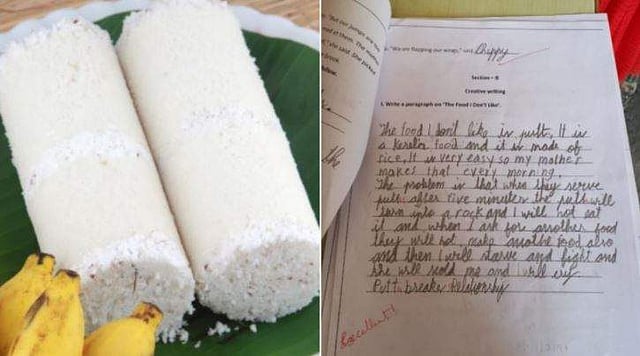 "We are flapping our wings," said Chippy
Section – B
Creative writing
I. Write a paragraph on 'The Food I Don't Like'.
The food I don't like is putt, It is
a kerala food and it is made of
rice, It is very easy so my mother
makes that every morning.
The problem is that when they serve
putt after five minutes the putt will
turn into a rock and I will not eat
it and when I ask for another food
they will not make another food also
and then I will starve and fight and
she will scold me and I will cry
Putt breakes Relationship
Excellent!